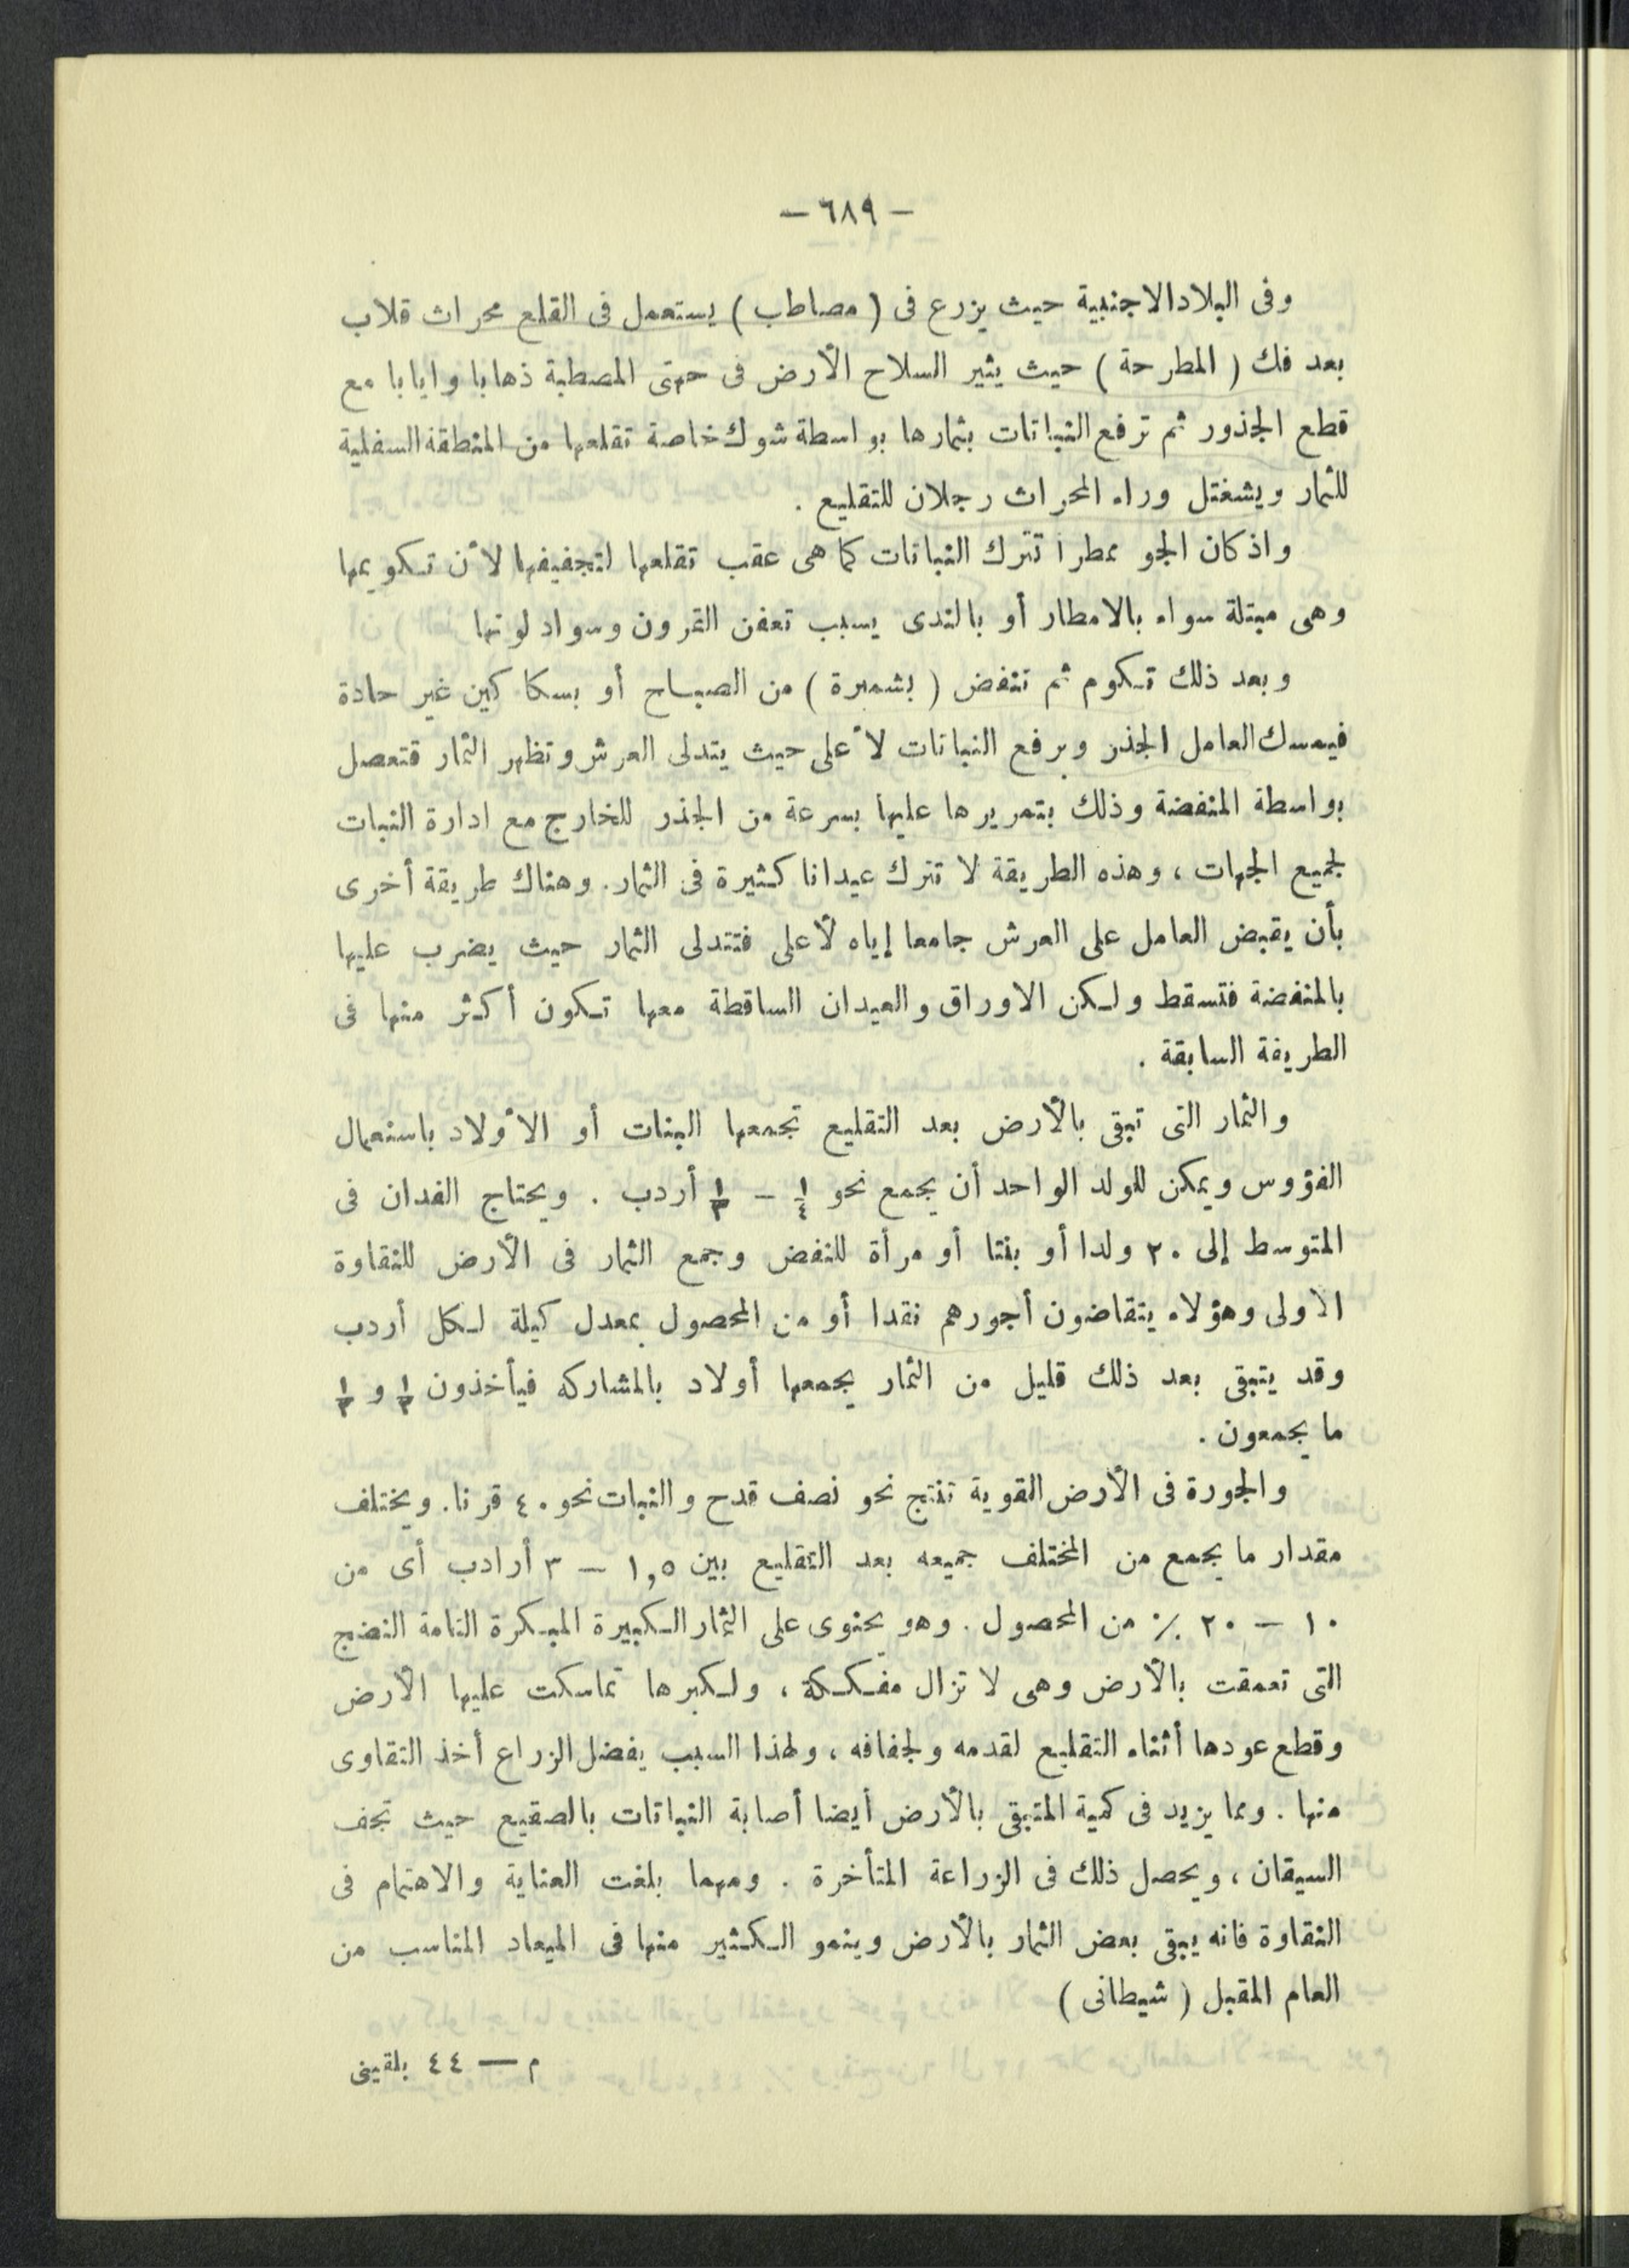 — ٦٨٩ —
وفى البلاد الاجنبية حيث يزرع فى ( مصاطب ) يستعمل فى القلع محراث قلاب
بعد فك ( المطرحة ) حيث يثير السلاح الأرض فى جهتى المصطبة ذهابا وايابا مع
قطع الجذور ثم ترفع النباتات بثمارها بواسطة شوك خاصة تقلعها من المنطقة السفلية
للثمار ويشغتل وراء المحراث رجلان للتقليع .
واذ كان الجو ممطرا تترك النباتات كما هى عقب تقلعها لتجفيفها لأن تكويمها
وهى مبتلة سواء بالامطار أو بالندى يسبب تعفن القرون وسواد لونها
وبعد ذلك تكوم ثم تنفض ( بشمبرة ) من الصباح أو بسكاكين غير حادة
فيمسك العامل الجذر ويرفع النباتات لأعلى حيث يتدلى العرش وتظهر الثمار فتعصل
بواسطة المنفضة وذلك بتمريرها عليها بسرعة من الجذر للخارج مع ادارة النبات
لجميع الجهات ، وهذه الطريقة لا تترك عيدانا كثيرة فى الثمار. وهناك طريقة أخرى
بأن يقبض العامل على العرش جامعا إياه لأعلى فتتدلى الثمار حيث يضرب عليها
بالمنفضة فتسقط ولكن الاوراق والعيدان الساقطة معها تكون أكثر منها فى
الطريقة السابقة .
والثمار التى تبقى بالأرض بعد التقليع تجمعها البنات أو الأولاد باستعمال
الفؤوس ويمكن للولد الواحد أن يجمع نحو ١/٤ – ١/٣ أردب . ويحتاج الفدان فى
المتوسط إلى ٢٠ ولدا أو بنتا أو مرأة للنفض وجمع الثمار فى الأرض للنقاوة
الاولى وهؤلاء يتقاضون أجورهم نقدا أو من المحصول بمعدل كيلة لكل أردب
وقد يتبقى بعد ذلك قليل من الثمار يجمعها أولاد بالمشاركه فيأخذون ١/٣ و ١/٢
ما يجمعون .
والجورة فى الأرض القوية تنتج نحو نصف قدح والنبات نحو ٤٠ قرنا. ويختلف
مقدار ما يجمع من المختلف جميعه بعد التقليع بين ١,٥ – ٣ أرادب أى من
١٠ – ٢٠ ٪ من المحصول . وهو يحتوى على الثمار الكبيرة المبكرة التامة النضج
التى تعمقت بالأرض وهى لا تزال مفككة ، ولكبرها تماسكت عليها الأرض
وقطع عودها أثناء التقليع لقدمه ولجفافه ، ولهذا السبب يفضل الزراع أخذ التقاوى
منها . ومما يزيد فى كمية المتبقى بالأرض أيضا أصابة النباتات بالصقيع حيث تجف
السيقان ، ويحصل ذلك فى الزراعة المتأخرة . ومهما بلغت العناية والاهتمام فى
النقاوة فانه يبقى بعض الثمار بالأرض وينمو الكثير منها فى الميعاد المناسب من
العام المقبل ( شيطانى )
م — ٤٤ بلقينى